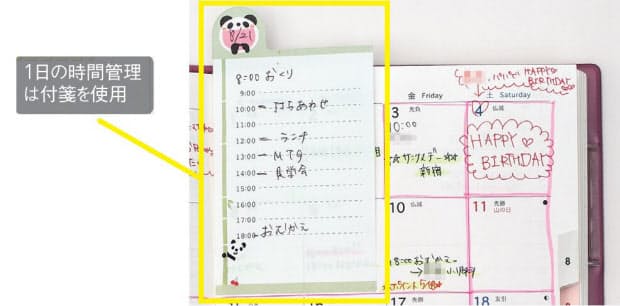 1日の時間管理
は付箋を使用
8/21
8:00 おくり
9:00
10:00 打ちあわせ
11:00
12:00 ランチ
13:00 MTG
14:00 見学会
15:00
16:00
17:00
18:00 おむかえ
HAPPY
BIRTHDAY
金 Friday
土 Saturday
3 先負
10:00
新宿
4 仏滅
HAPPY
BIRTHDAY
10 仏滅
11 先勝
山の日
8:00 おむかえ
17 先勝
18 友引
8